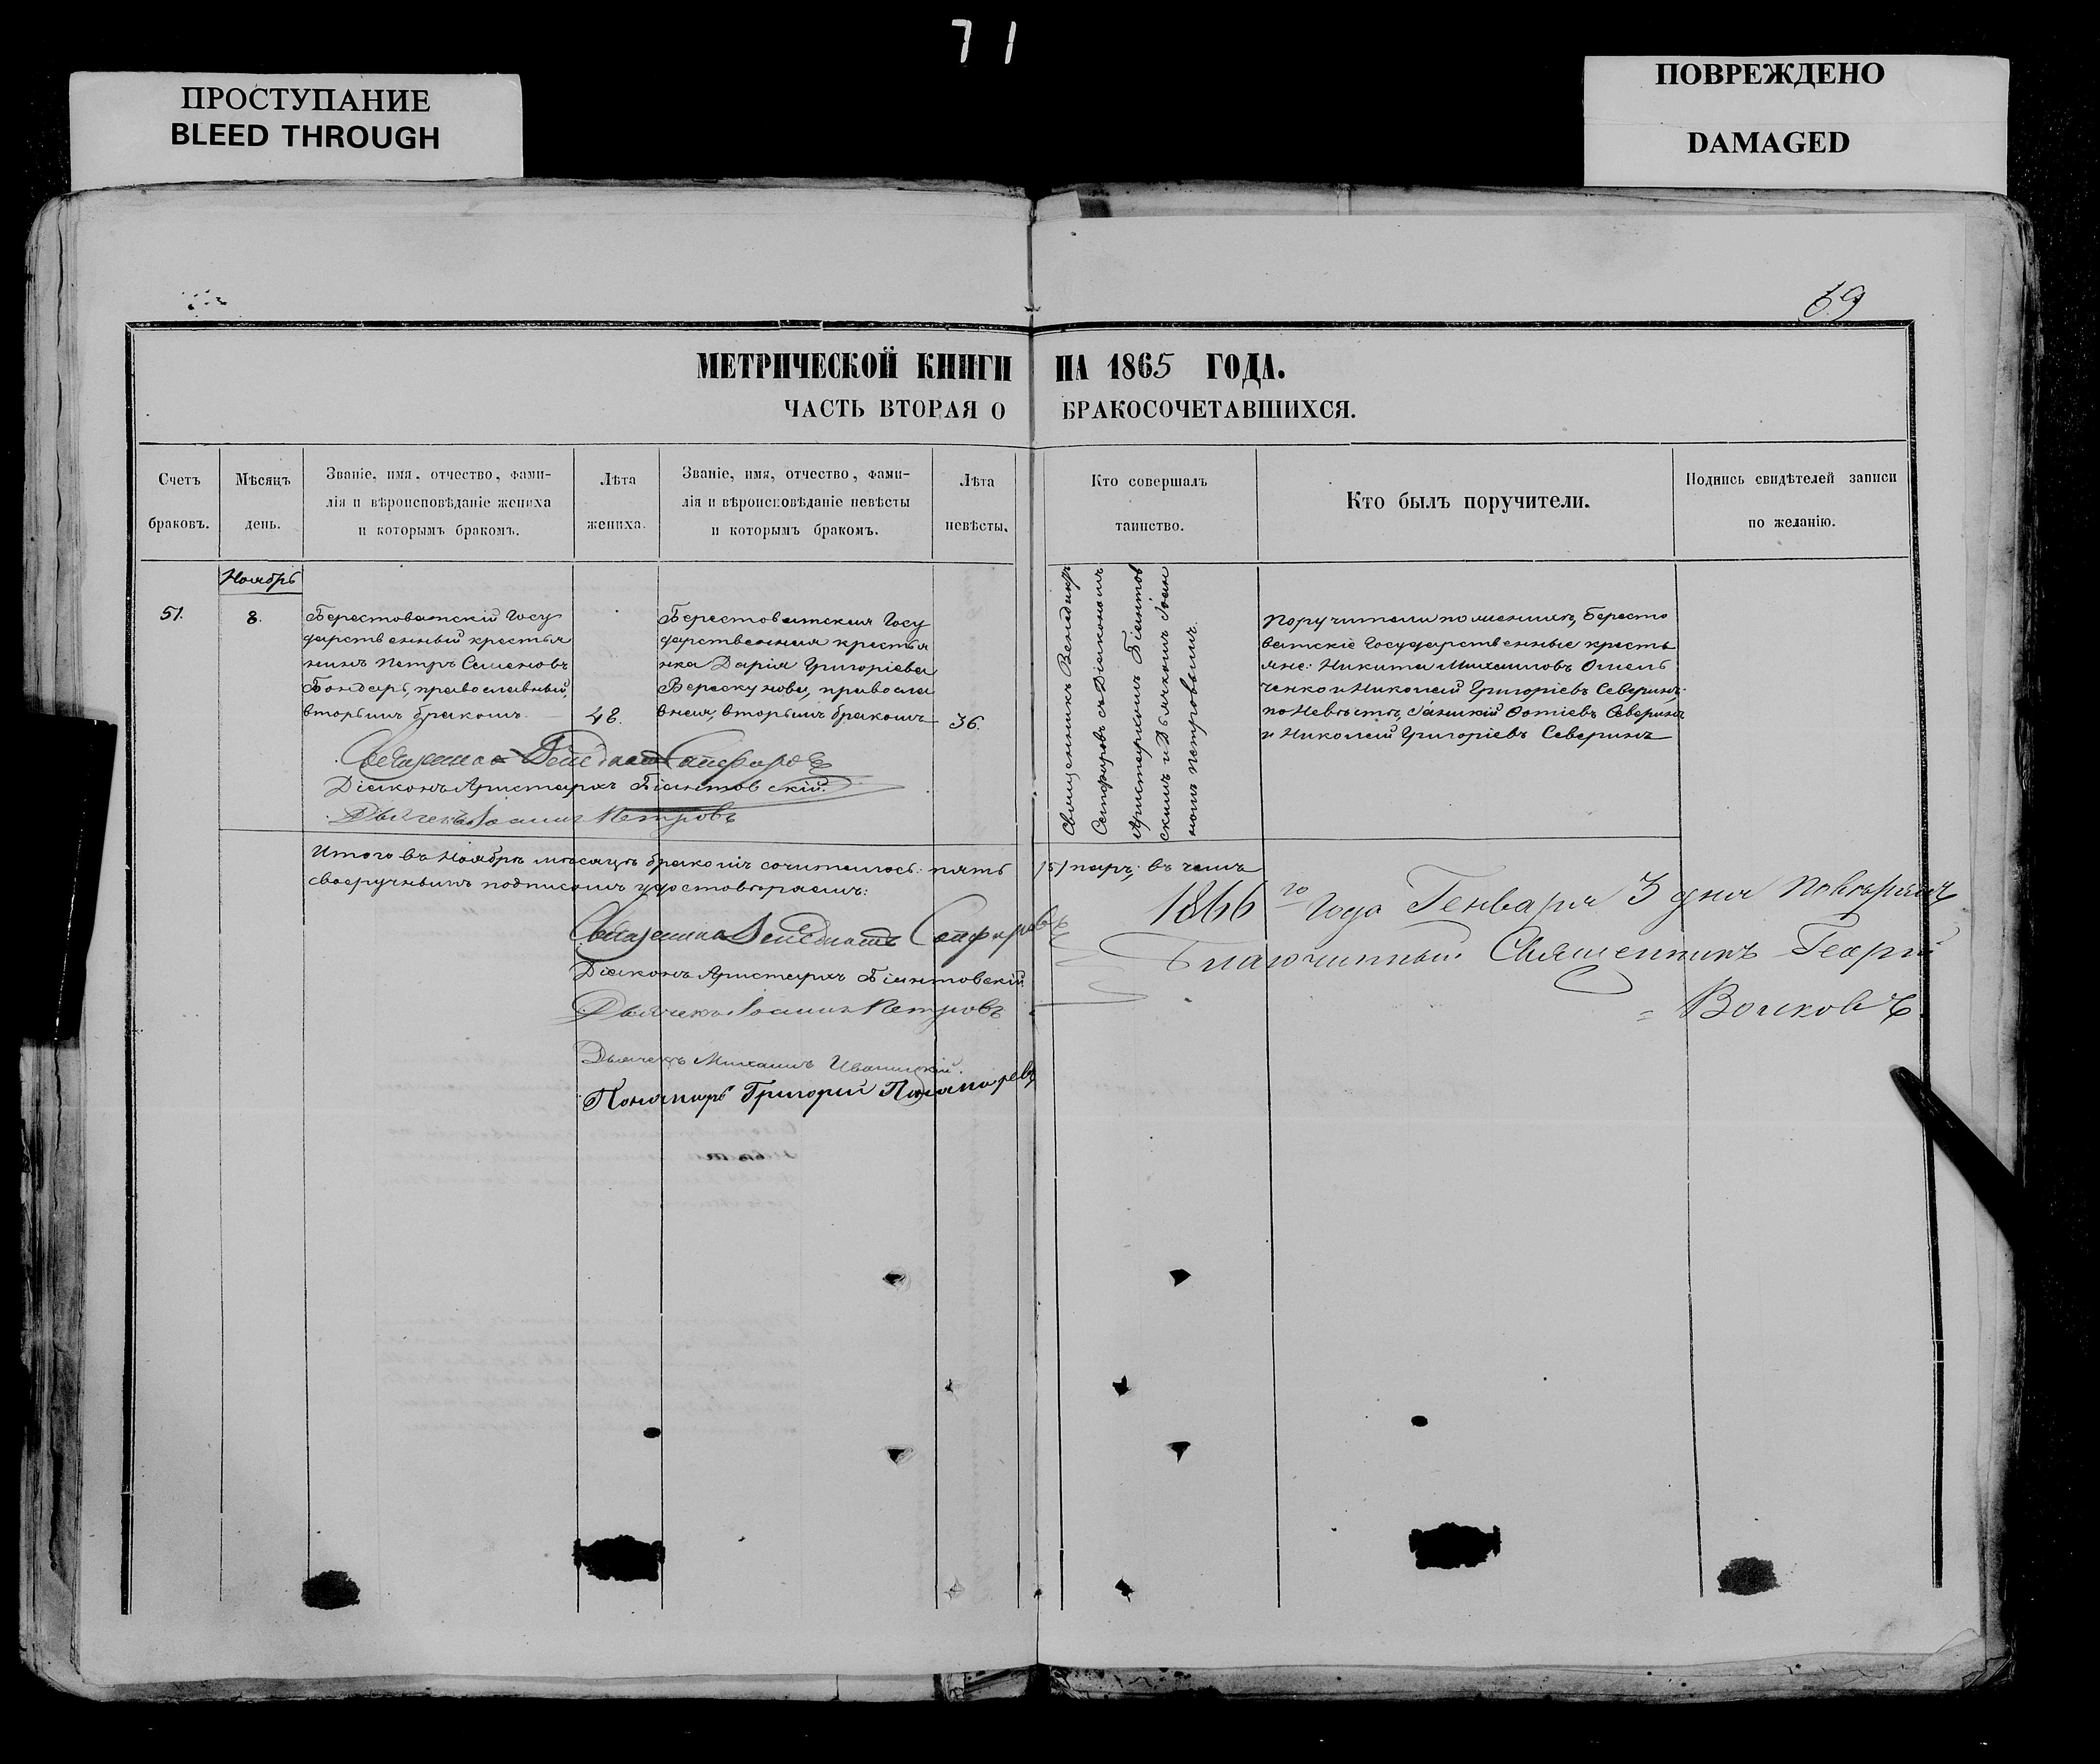 71
ПРОСТУПАНИЕ
BLEED THROUGH
ПОВРЕЖДЕНО
DAMAGED
69
МЕТРИЧЕСКОЙ КНИГИ НА 1865 ГОДА.
ЧАСТЬ ВТОРАЯ О БРАКОСОЧЕТАВШИХСЯ.
Счетъ
браковъ.
Мѣсяцъ
день.
Званіе, имя, отчество, фами-
лія и вѣроисповѣданіе жениха
и которымъ бракомъ.
Лѣта
жениха.
Званіе, имя, отчество, фами-
лія и вѣроисповѣданіе невѣсты
и которымъ бракомъ.
Лѣта
невѣсты.
Кто совершалъ
таинство.
Кто былъ поручители.
Подпись свидѣтелей записи
по желанію.
Ноябрь
51.
8.
Берестоватскій Госу
дарственный крестья
нинъ Петръ Семеновъ
Бондарь, православный,
вторымъ бракомъ.
48.
Берестоватская Госу
дарственная крестья
нка Дарія Григоріева
Верескунова, правосла
вная, вторымъ бракомъ
36.
Священникъ
Сапфировъ съ Діакономъ
Аристархомъ Біянтов
скимъ и Дьячкомъ Іоан
номъ Петровымъ.
Поручители по женихѣ, Бересто
ватскіе Государственные кресть
яне: Никита Михаиловъ Омель
ченко и Николай Григоріевъ Северинъ;
по Невѣстѣ, Фотіевъ Северинъ
и Николай Григоріевъ Северинъ
Священникъ Сапфировъ
Діаконъ Аристархъ Біянтовскій.
Дьячекъ Іоаннъ Петровъ
Итого въ Ноябрѣ мѣсяцѣ бракомъ сочиталось: пять /5/ паръ; въ чемъ
своеручнымъ подписомъ удостовѣряемъ:
Священникъ Сапфировъ
Діаконъ Аристархъ Біянтовскій.
Дьячекъ Іоаннъ Петровъ
Дьячекъ Михаилъ Иваницкій.
Пономарь Григорій Пономаревъ
1866го Года Генваря 3 дня повѣрялъ
Благочинный Священникъ Георгій
Волковъ